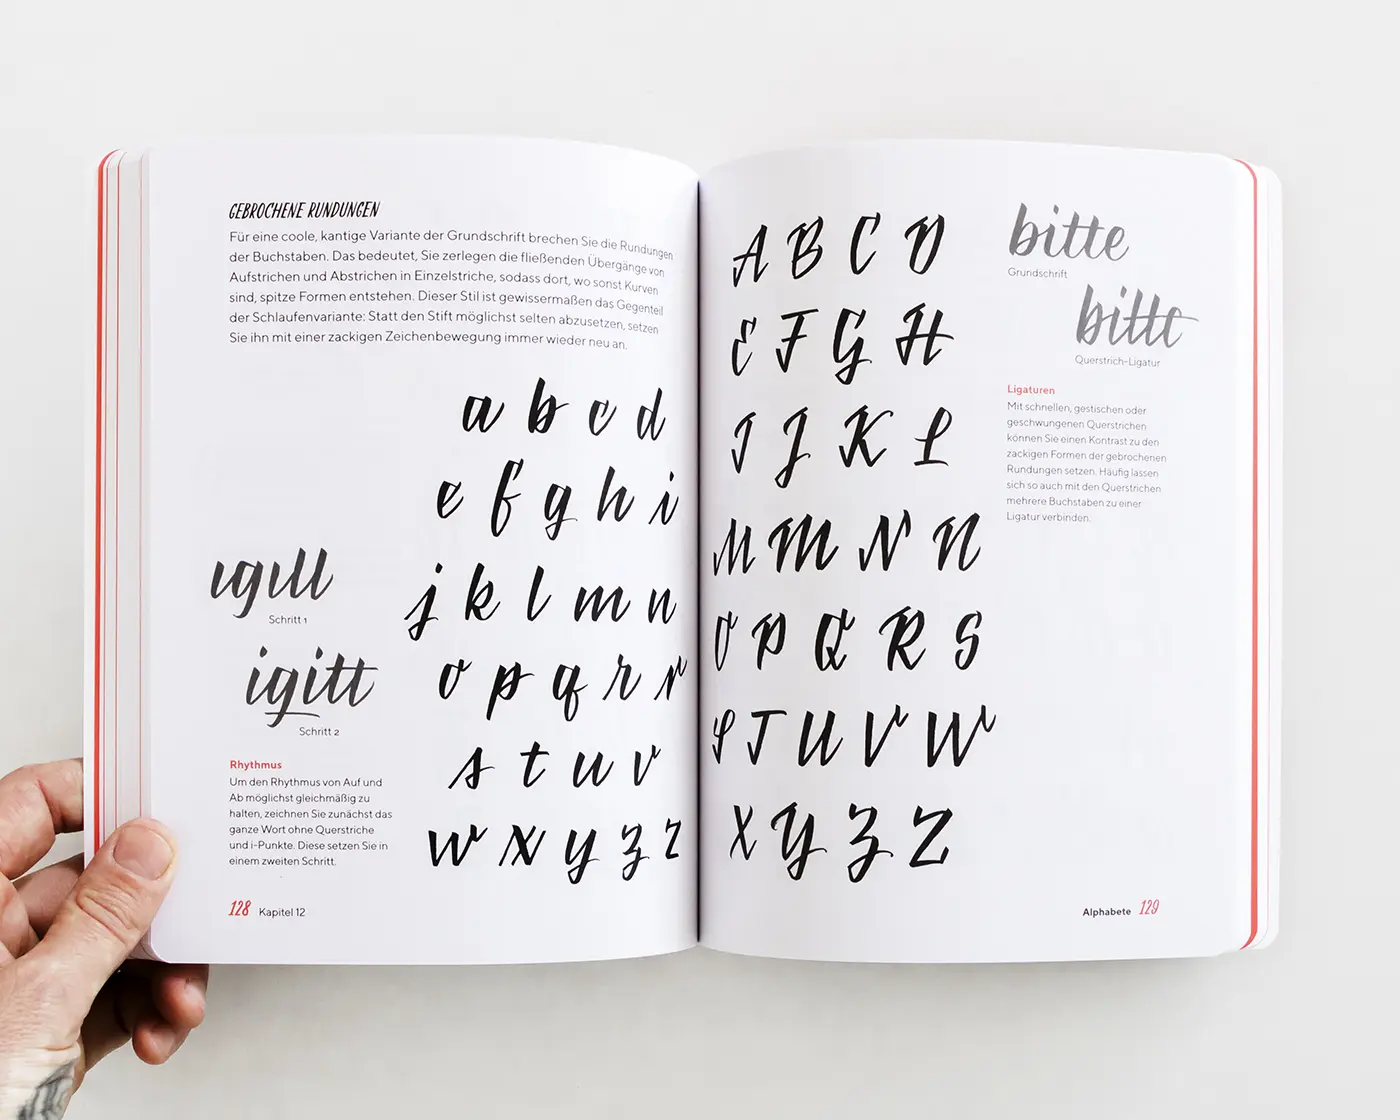 GEBROCHENE RUNDUNGEN
Für eine coole, kantige Variante der Grundschrift brechen Sie die Rundungen
der Buchstaben. Das bedeutet, Sie zerlegen die fließenden Übergänge von
Aufstrichen und Abstrichen in Einzelstriche, sodass dort, wo sonst Kurven
sind, spitze Formen entstehen. Dieser Stil ist gewissermaßen das Gegenteil
der Schlaufenvariante: Statt den Stift möglichst selten abzusetzen, setzen
Sie ihn mit einer zackigen Zeichenbewegung immer wieder neu an.
a b c d
e f g h i
j k l m n
o p q r r
s t u v
w x y z z
ıgıll
Schritt 1
igitt
Schritt 2
Rhythmus
Um den Rhythmus von Auf und
Ab möglichst gleichmäßig zu
halten, zeichnen Sie zunächst das
ganze Wort ohne Querstriche
und i-Punkte. Diese setzen Sie in
einem zweiten Schritt.
128 Kapitel 12
A B C D
E F G H
I J K L
M M N N
O P Q R S
S T U V W
X Y Z Z
bitte
Grundschrift
bitte
Querstrich-Ligatur
Ligaturen
Mit schnellen, gestischen oder
geschwungenen Querstrichen
können Sie einen Kontrast zu den
zackigen Formen der gebrochenen
Rundungen setzen. Häufig lassen
sich so auch mit den Querstrichen
mehrere Buchstaben zu einer
Ligatur verbinden.
Alphabete 129